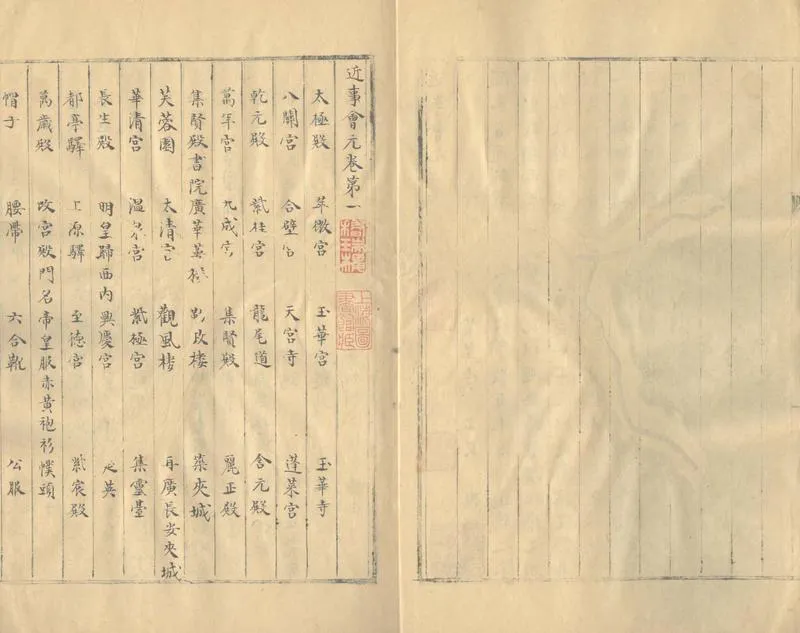 近事會元卷第一
太極殿 翠微宮 玉華宮 玉華寺
八關宮 合璧宮 天宮寺 蓬萊宮
乾元殿 紫桂宮 龍尾道 含元殿
萬年宮 九成宮 集賢殿 麗正殿
集賢殿書院 華萼樓 勤政樓 築夾城
芙蓉園 太清宮 觀風樓 再廣長安夾城
華清宮 溫泉宮 紫極宮 集靈臺
長生殿 明皇歸西內 興慶宮 延英
都亭驛 上源驛 至德宮 紫宸殿
萬歲殿 改宮殿門名 帝皇服赤黃袍衫 幞頭
帽子 腰帶 六合靴 公服
上海圖書館藏